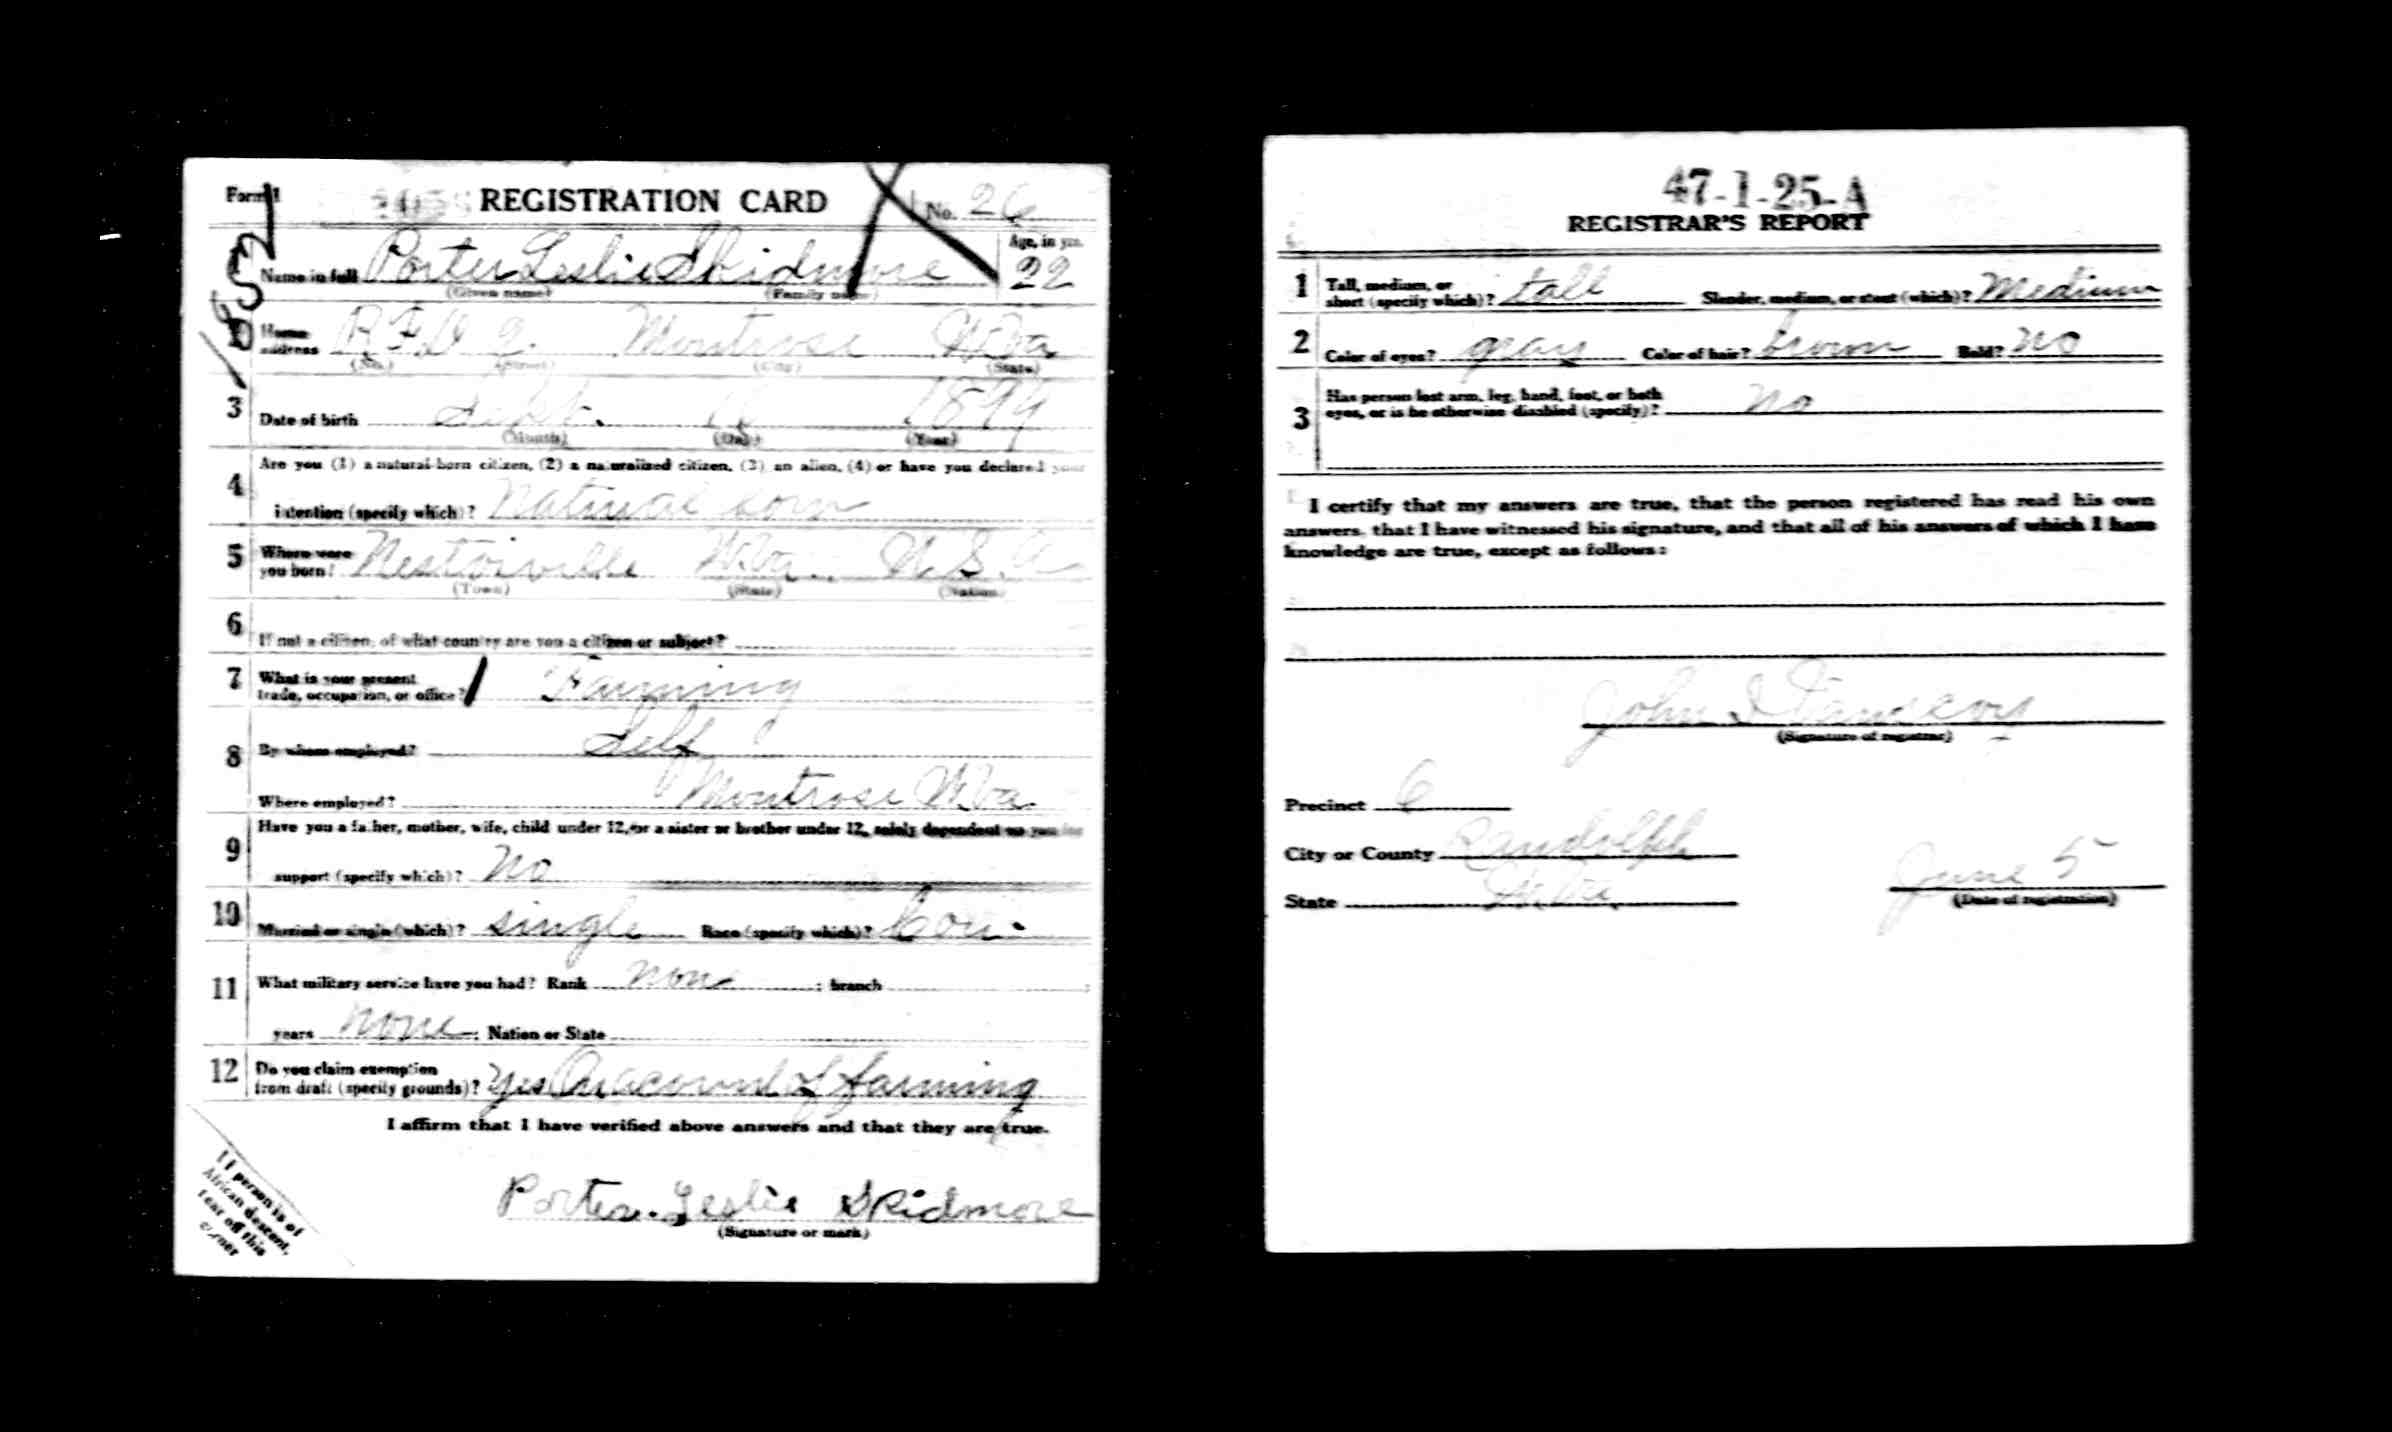 Form 1 REGISTRATION CARD No. 26
1 Name in full Porter Leslie Skidmore Age, in yrs. 22
(Given name) (Family name)
2 Home address R F D 2. Montrose W.Va
(No.) (Street) (City) (State)
3 Date of birth Sept. 1894
(Month) (Day) (Year)
4 Are you (1) a natural-born citizen, (2) a naturalized citizen, (3) an alien, (4) or have you declared your
intention (specify which)? Natural born
5 Where were you born? Nestorville W.Va. U.S.A
(Town) (State) (Nation)
6 If not a citizen, of what country are you a citizen or subject?
7 What is your present trade, occupation, or office? Farming
8 By whom employed? Self
Where employed? Montrose W.Va.
9 Have you a father, mother, wife, child under 12, or a sister or brother under 12, solely dependent on you for
support (specify which)? No
10 Married or single (which)? single Race (specify which)? Cau.
11 What military service have you had? Rank none ; branch ;
years none ; Nation or State
12 Do you claim exemption from draft (specify grounds)? Yes On acount of farming
I affirm that I have verified above answers and that they are true.
Porter. Leslie Skidmore
(Signature or mark)
If person is of
African descent,
tear off this
corner
47-1-25-A
REGISTRAR'S REPORT
1 Tall, medium, or short (specify which)? tall Slender, medium, or stout (which)? Medium
2 Color of eyes? gray Color of hair? brown Bald? No
3 Has person lost arm, leg, hand, foot, or both
eyes, or is he otherwise disabled (specify)? No
I certify that my answers are true, that the person registered has read his own
answers, that I have witnessed his signature, and that all of his answers of which I have
knowledge are true, except as follows:
John
(Signature of registrar)
Precinct 6
City or County Randolph
State W.Va. June 5
(Date of registration)